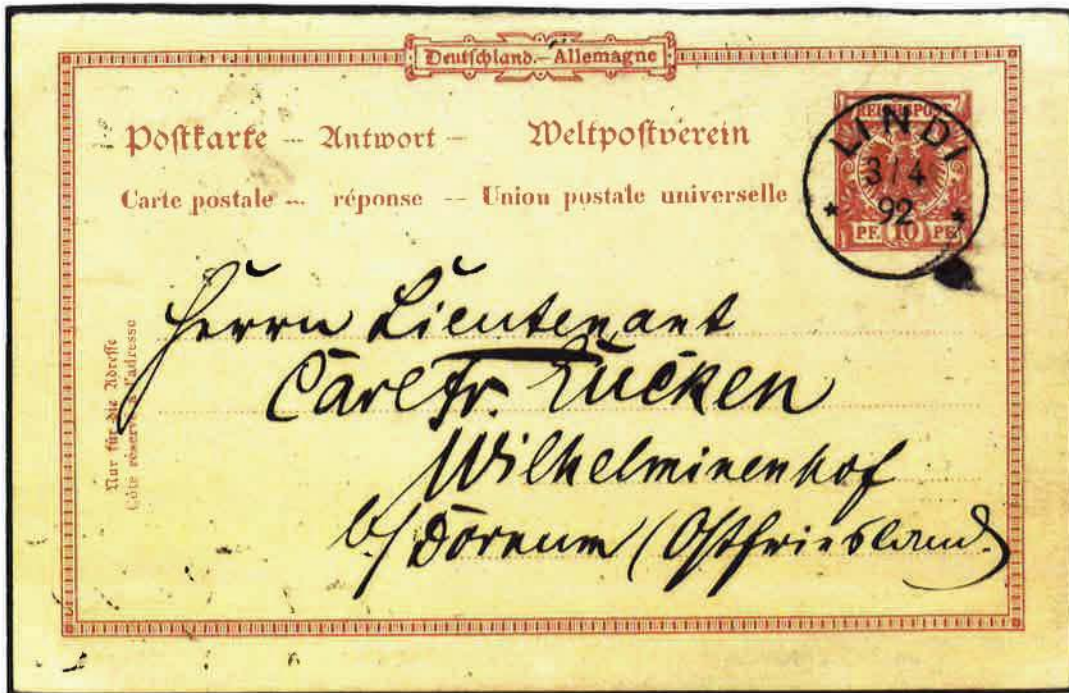 Deutschland.—Allemagne
Postkarte — Antwort — Weltpostverein
Carte postale — réponse — Union postale universelle
REICHSPOST
PF. 10 PF.
LINDI
3/4
92
Nur für die Adresse
Côté réservé à l'adresse
Herrn Lieutenant
Carl Fr. Lücken
Wilhelminenhof
b/ Dornum (Ostfriesland)